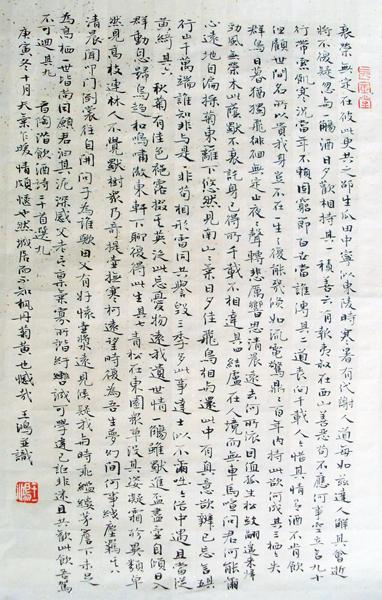 衰榮無定在彼此更共之邵生瓜田中寧似東陵時寒暑有代謝人道每如茲達人解其會逝
將不復疑忽與一觴酒日夕歡相持其一積善云有報夷叔在西山善惡苟不應何事空立言九十
行帶索飢寒況當年不賴固窮節百世當誰傳其二道喪向千載人人惜其情有酒不肯飲
但顧世間名所以貴我身豈不在一生一生復能幾倏如流電驚鼎鼎百年內持此欲何成其三栖栖失
群鳥日暮猶獨飛徘徊無定止夜夜聲轉悲厲響思清晨遠去何所依因值孤生松斂翮遙來歸
勁風無榮木此蔭獨不衰託身已得所千載不相違其四結廬在人境而無車馬喧問君何能爾
心遠地自偏採菊東籬下悠然見南山山氣日夕佳飛鳥相與還此中有真意欲辨已忘言其五
行止千萬端誰知非與是是非苟相形雷同共譽毀三季多此事達士似不爾咄咄俗中愚且當從
黃綺其六秋菊有佳色裛露掇其英汎此忘憂物遠我遺世情一觴雖獨進杯盡壺自傾日入
群動息歸鳥趨林鳴嘯傲東軒下聊復得此生其七青松在東園眾草沒其姿凝霜殄異類卓
然見高枝連林人不覺獨樹眾乃奇提壺撫寒柯遠望時復為吾生夢幻間何事紲塵羈其八
清晨聞叩門倒裳往自開問子為誰歟田父有好懷壺漿遠見候疑我與時乖繿縷茅簷下未足
為高栖一世皆尚同願君汩其泥深感父老言稟氣寡所諧紆轡誠可學違己詎非迷且共歡此飲吾駕
不可迴其九 右陶潛飲酒詩二十首選九
庚寅冬十月天氣乍暖情頗慵也然城居而不知楓丹菊黃也憾哉 王鴻并識